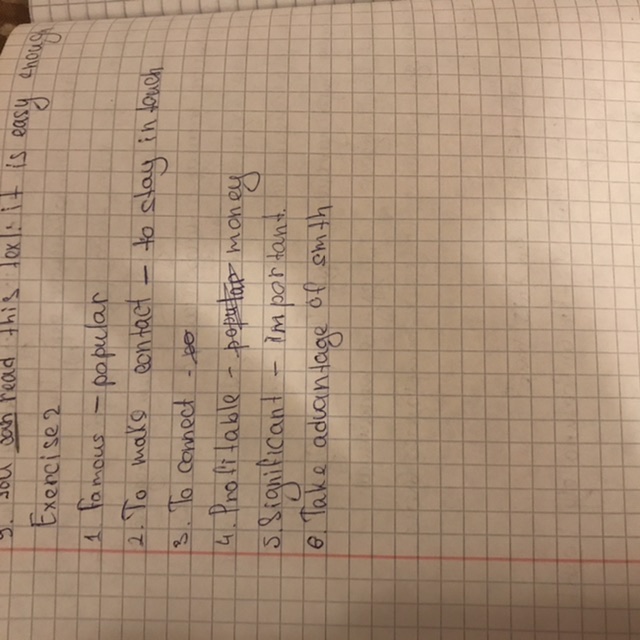 9. You can read this text it is easy enough
Exercise 2
1. Famous – popular
2. To make contact – to stay in touch
3. To connect -
4. Profitable - popular money
5 Significant – important.
6. Take advantage of smth